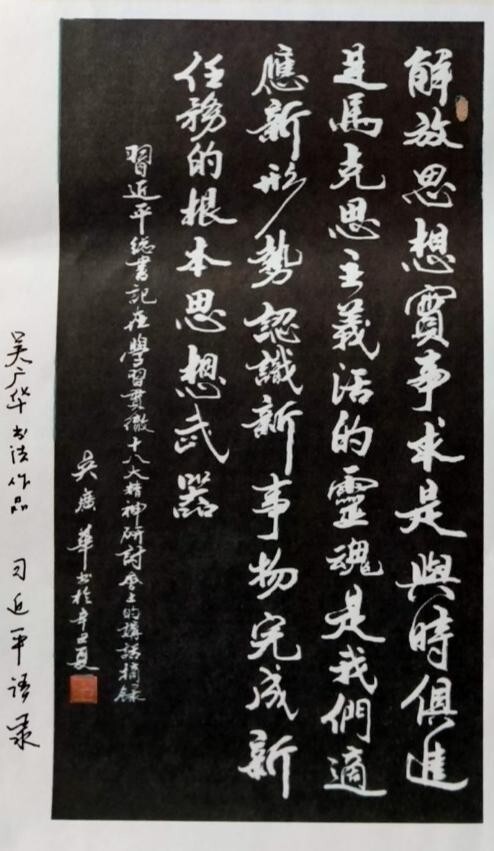 解放思想實事求是與時俱進
是馬克思主義活的靈魂是我們適
應新形勢認識新事物完成新
任務的根本思想武器
習近平總書記在學習貫徹十八大精神研討會上的講話摘錄
吳廣華书於辛丑夏
吴广华书法作品 习近平语录